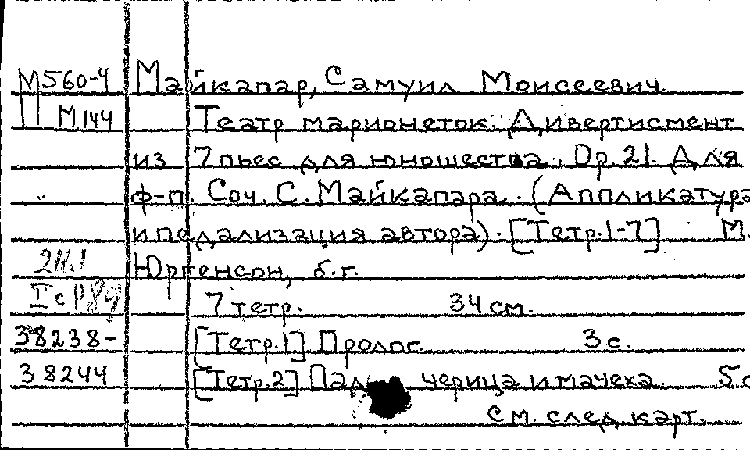 М560-4 Майкапар, Самуил Моисеевич.
М144 Театр марионеток. Дивертисмент
из 7 пьес для юношества. Op. 21. Для
ф-п. Соч. С. Майкапара. (Аппликатура
и педализация автора). [Тетр. 1-7] М.
Юргенсон, б.г.
7 тетр. 34 см.
38238- [Тетр. 1] Пролог. 3 с.
38244 [Тетр. 2] черица и мачеха. 5 с
См. след. карт.